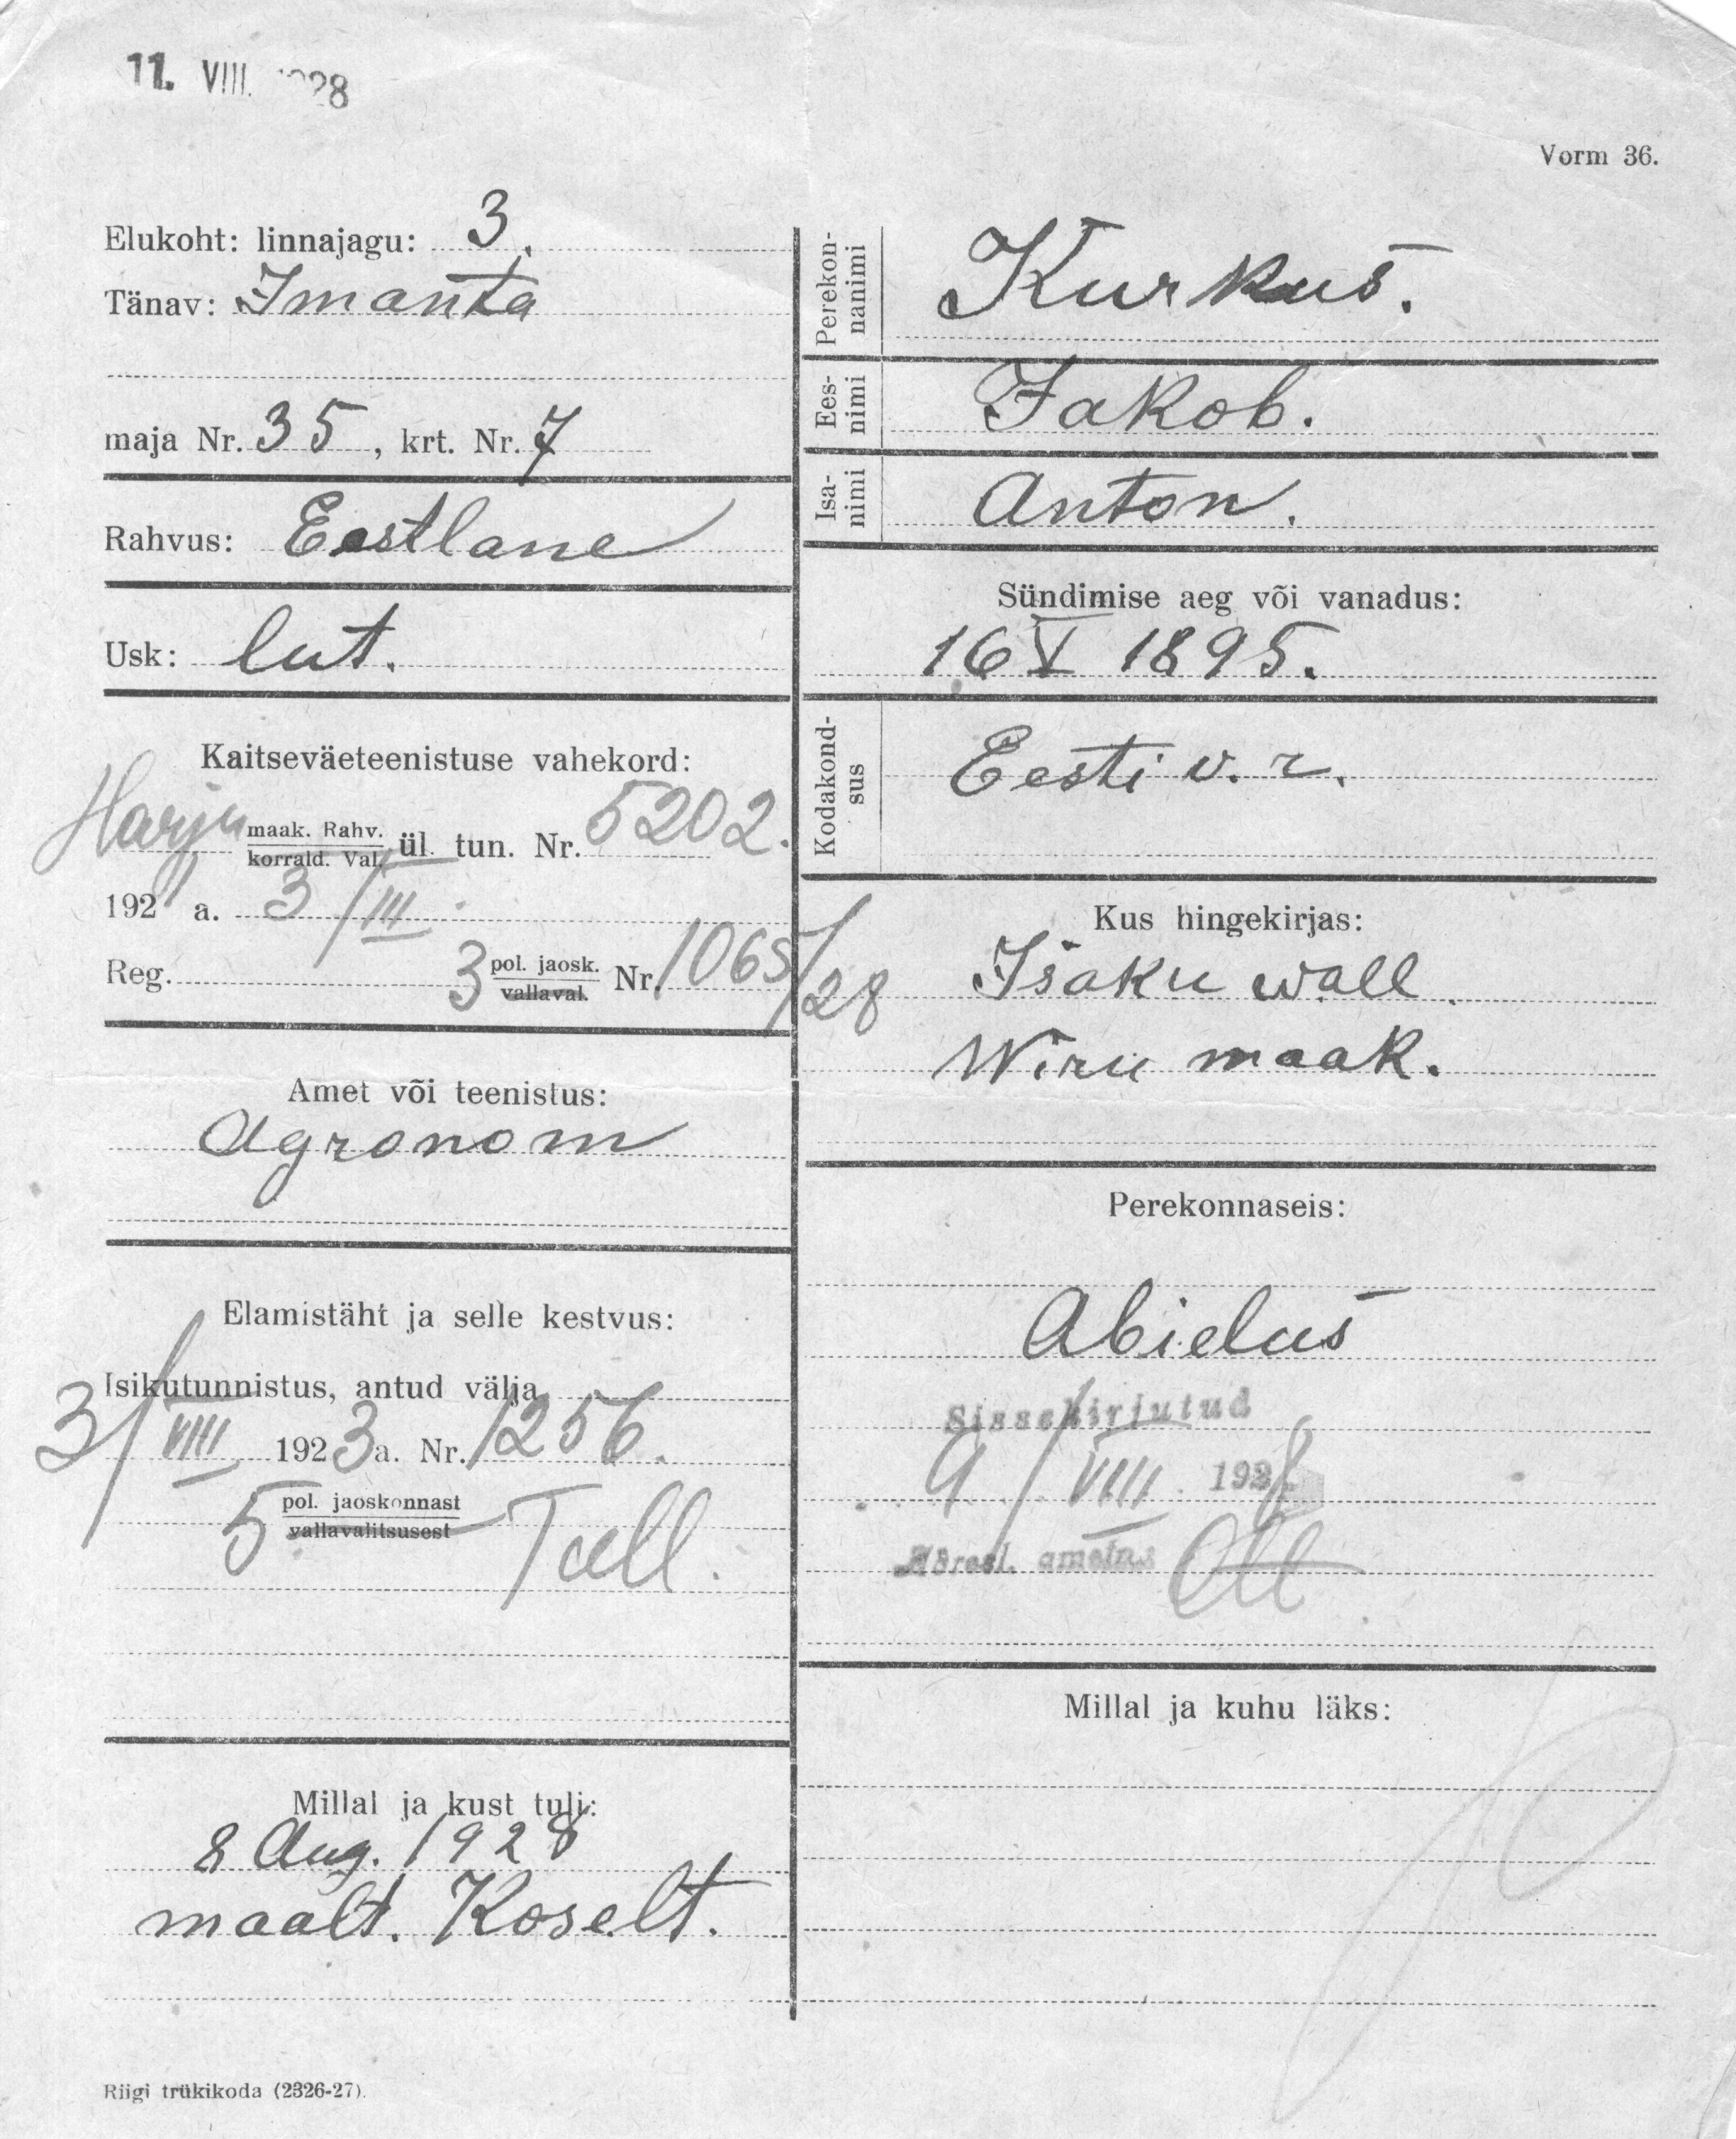 11. VIII. 1928
Vorm 36.
Elukoht: linnajagu: 3.
Tänav: Imanta
maja Nr. 35, krt. Nr. 7
Rahvus: Eestlane
Usk: lut.
Kaitseväeteenistuse vahekord:
Harju maak. Rahv. ül. tun. Nr. 5202.
korrald. Val.
192 a. 3/III
Reg. 3 pol. jaosk. Nr. 1065/28
vallaval.
Amet või teenistus:
Agronom
Elamistäht ja selle kestvus:
Isikutunnistus, antud välja
3/VIII 1923 a. Nr. 1256.
5 pol. jaoskonnast Tall.
vallavalitsusest
Millal ja kust tuli:
8 Aug. 1928
maalt. Koselt.
Riigi trükikoda (2326-27).
Perekon-
nanimi
Kurkus.
Ees-
nimi
Jakob.
Isa-
nimi
Anton.
Sündimise aeg või vanadus:
16 V 1895.
Kodakond-
sus
Eesti v. r.
Kus hingekirjas:
Isaku wall.
Wiru maak.
Perekonnaseis:
Abielus
Sissekirjutud
9/VIII 1928
Millal ja kuhu läks: